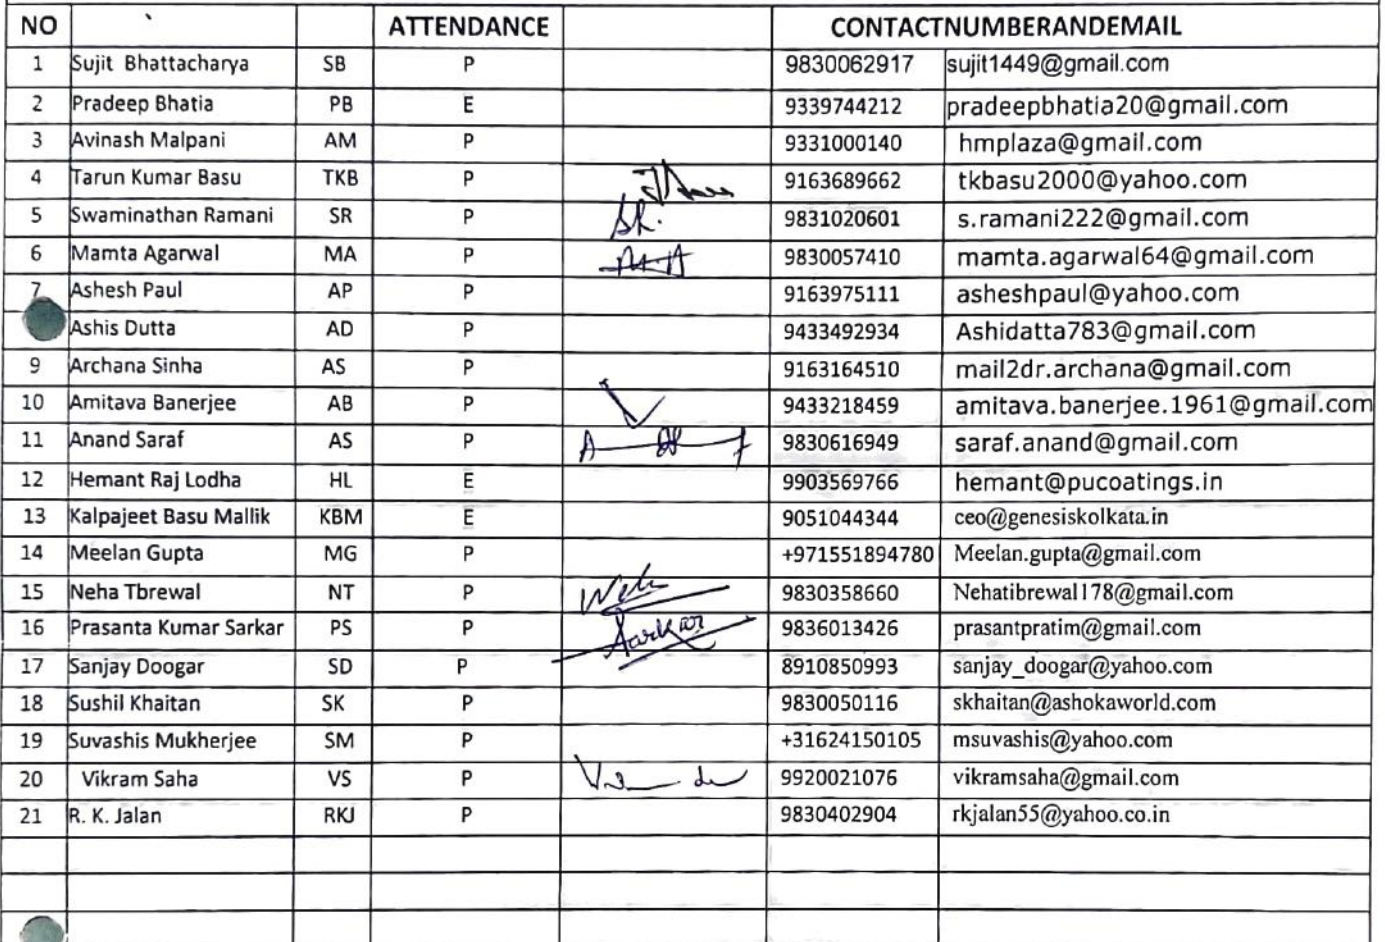 NO ATTENDANCE CONTACTNUMBERANDEMAIL
1 Sujit Bhattacharya SB P 9830062917 sujit1449@gmail.com
2 Pradeep Bhatia PB E 9339744212 pradeepbhatia20@gmail.com
3 Avinash Malpani AM P 9331000140 hmplaza@gmail.com
4 Tarun Kumar Basu TKB P 9163689662 tkbasu2000@yahoo.com
5 Swaminathan Ramani SR P SR. 9831020601 s.ramani222@gmail.com
6 Mamta Agarwal MA P 9830057410 mamta.agarwal64@gmail.com
7 Ashesh Paul AP P 9163975111 asheshpaul@yahoo.com
Ashis Dutta AD P 9433492934 Ashidatta783@gmail.com
9 Archana Sinha AS P 9163164510 mail2dr.archana@gmail.com
10 Amitava Banerjee AB P 9433218459 amitava.banerjee.1961@gmail.com
11 Anand Saraf AS P 9830616949 saraf.anand@gmail.com
12 Hemant Raj Lodha HL E 9903569766 hemant@pucoatings.in
13 Kalpajeet Basu Mallik KBM E 9051044344 ceo@genesiskolkata.in
14 Meelan Gupta MG P +971551894780 Meelan.gupta@gmail.com
15 Neha Tbrewal NT P 9830358660 Nehatibrewal178@gmail.com
16 Prasanta Kumar Sarkar PS P Sarkar 9836013426 prasantpratim@gmail.com
17 Sanjay Doogar SD P 8910850993 sanjay_doogar@yahoo.com
18 Sushil Khaitan SK P 9830050116 skhaitan@ashokaworld.com
19 Suvashis Mukherjee SM P +31624150105 msuvashis@yahoo.com
20 Vikram Saha VS P 9920021076 vikramsaha@gmail.com
21 R. K. Jalan RKJ P 9830402904 rkjalan55@yahoo.co.in